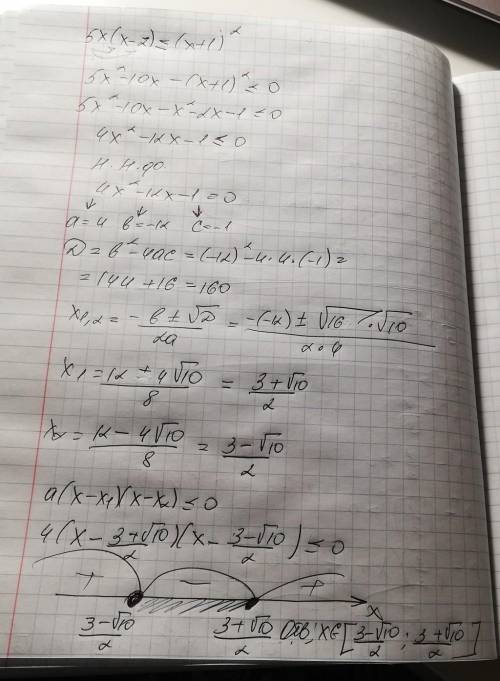 5x(x-2)≤(x+1)²
5x²-10x-(x+1)²≤0
5x²-10x-x²-2x-1≤0
4x²-12x-1≤0
н.н.фо.
4x²-12x-1=0
a=4 b=-12 c=-1
D=b²-4ac=(-12)²-4·4·(-1)=
=144+16=160
x₁,₂=(-b±√D)/2a=(-(-12)±√16·√10)/2·4
x₁=(12+4√10)/8=(3+√10)/2
x₂=(12-4√10)/8=(3-√10)/2
a(x-x₁)(x-x₂)≤0
4(x-(3+√10)/2)(x-(3-√10)/2)≤0
+ - + x
(3-√10)/2 (3+√10)/2 Отв: x∈[(3-√10)/2; (3+√10)/2]